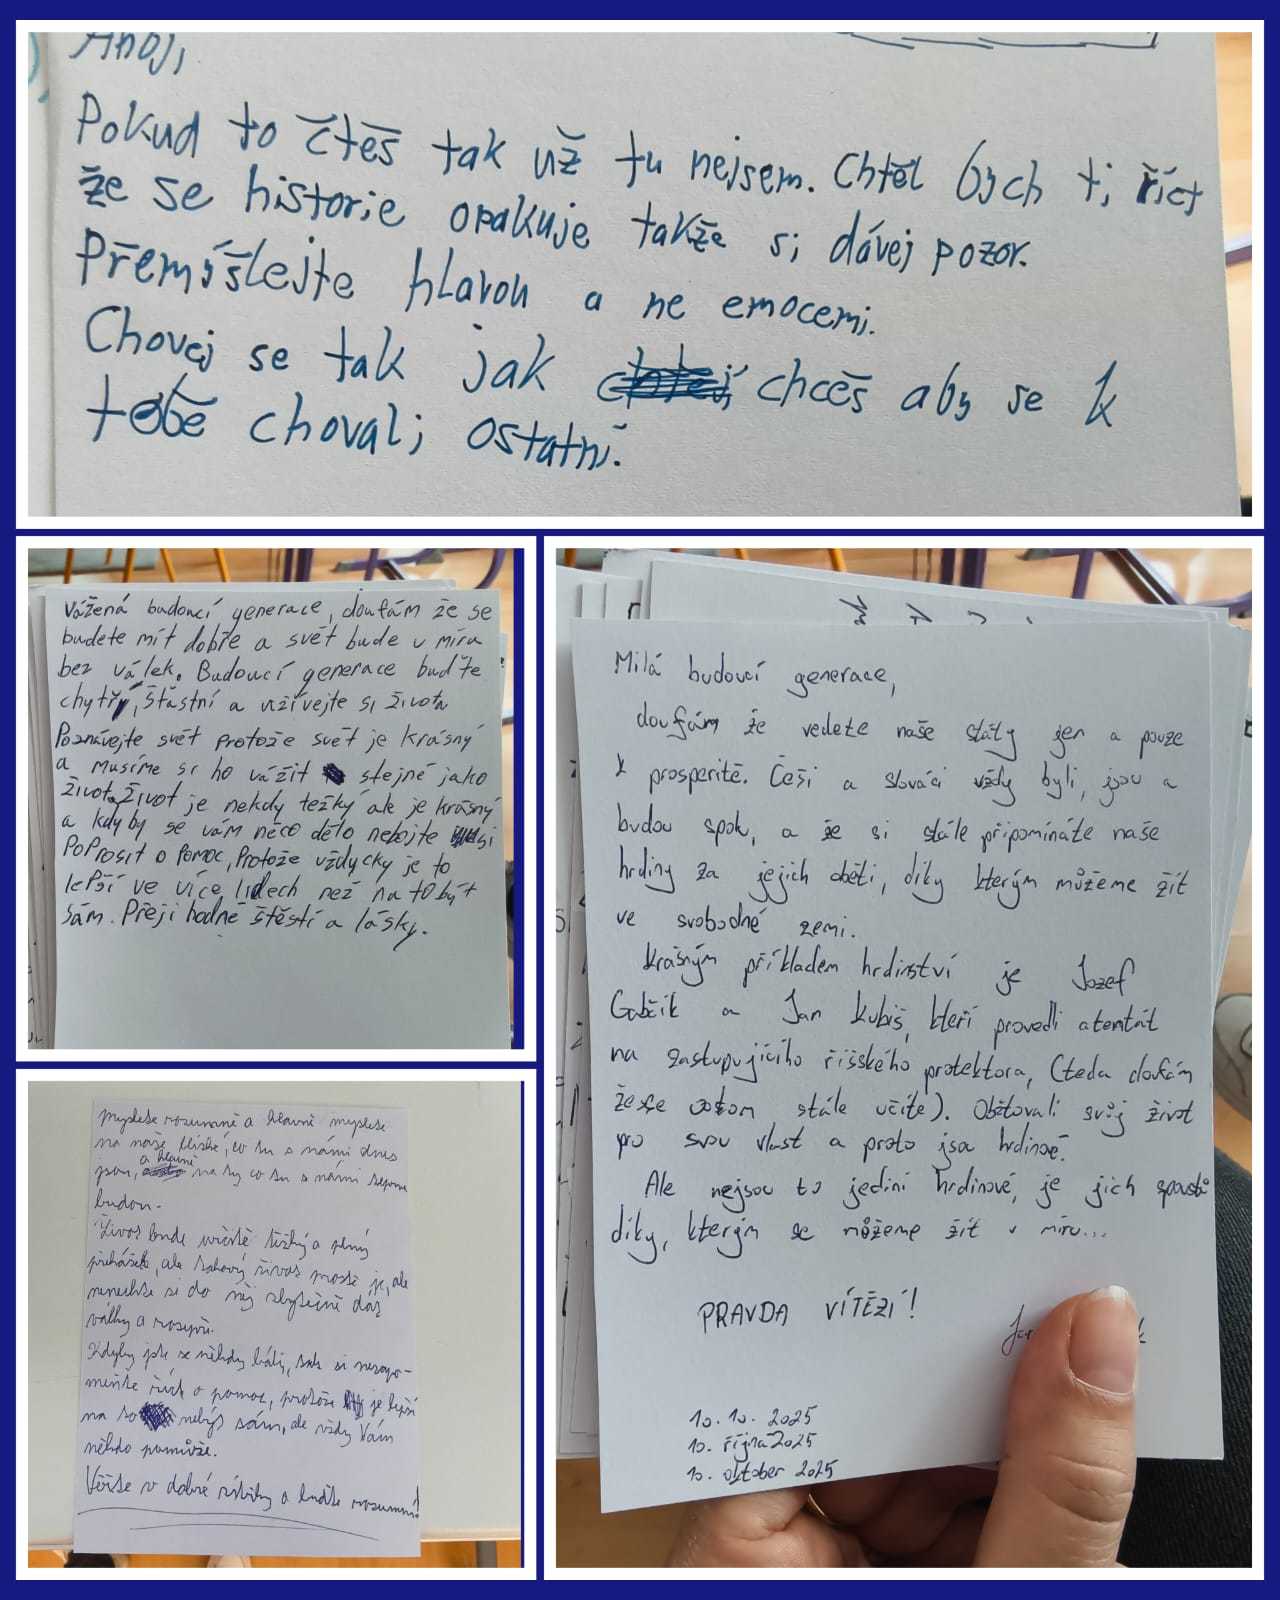 Ahoj,
Pokud to čteš tak už tu nejsem. Chtěl bych ti říct
že se historie opakuje takže si dávej pozor.
Přemíšlejte hlavou a ne emocemi.
Chovej se tak jak chceš aby se k
tobě chovali ostatní.
Vážená budoucí generace, doufám že se
budete mít dobře a svět bude v míru
bez válek. Budoucí generace buďte
chytří, šťastní a užívejte si života
Poznávejte svět protože svět je krásný
a musíme si ho vážit stejně jako
života. Život je nekdy težký ale je krásný
a kdyby se vám něco dělo nebojte si
poprosit o pomoc, Protože vždycky je to
lepší ve více lidech než na to být
sám. Přeji hodně štěstí a lásky.
Milá budoucí generace,
doufám že vedete naše státy jen a pouze
k prosperitě. Češi a slováci vždy byli, jsou a
budou spolu, a že si stále připomínáte naše
hrdiny za jejich oběti, díky kterým můžeme žít
ve svobodné zemi.
Krásným příkladem hrdinství je Jozef
Gabčík a Jan Kubiš, kteří provedli atentát
na zastupujícího říšského protektora, (teda doufám
že se o tom stále učíte). Obětovali svůj život
pro svou vlast a proto jsou hrdinové.
Ale nejsou to jediní hrdinové, je jich spousta
díky, kterým se můžeme žít v míru...
PRAVDA VÍTĚZÍ!
10. 10. 2025
10. října 2025
10. október 2025
Myslete rozumně a hlavně myslete
na naše blízké, co tu s námi dnes
jsou, a hlavně na ty co tu s námi
budou.
Život bude určitě těžký a plný
překážek, ale takový život prostě je, ale
nenechte si do něj zbytečně dát
války a rozepře.
Kdyby jste se někdy báli, tak si nezapo-
meňte říct o pomoc, protože je lepší
na to nebýt sám, ale vždy Vám
někdo pomůže.
Věřte v dobré zítřky a buďte rozumní!